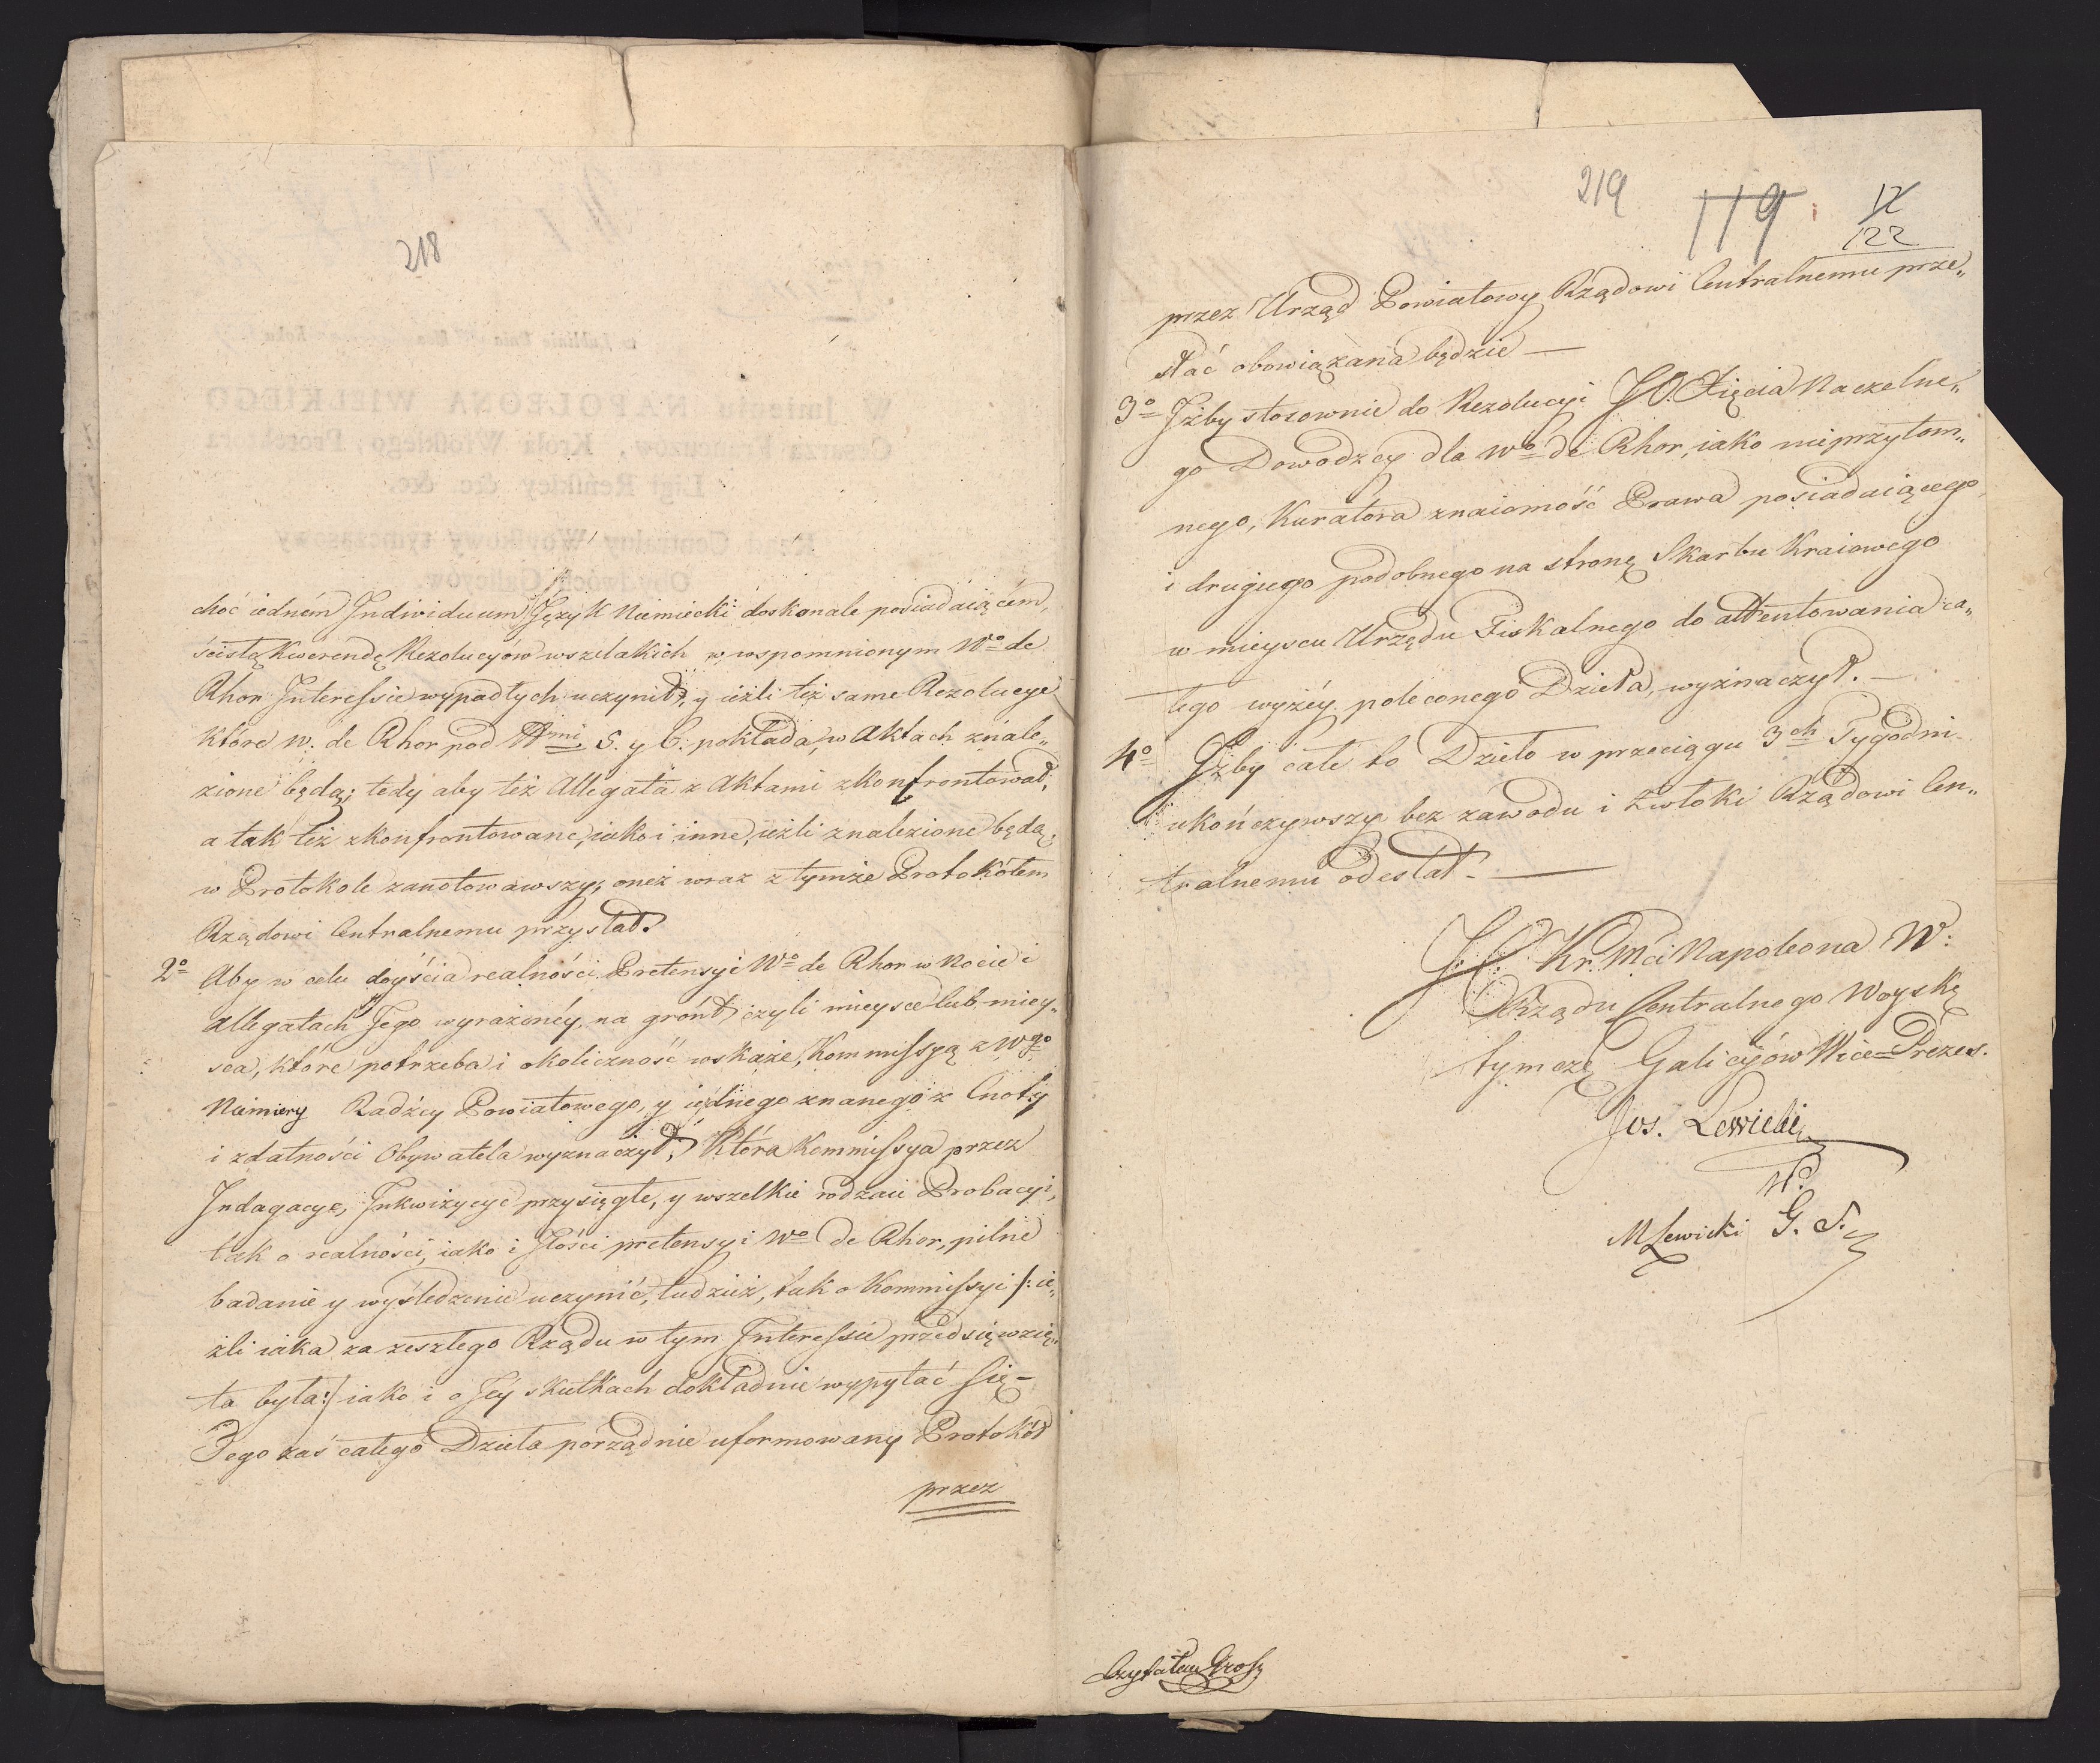 218
choć iedném Individuum Język Niemiecki doskonale posiadaiącém,
ścisłą Kwerendę Rezolucyów wszelakich w wspomnionym Wo de
Rhor Interessie wypadłych uczynił, y ieżli też same Rezolucye
które W. de Rhor pod 5. y 6: pokłada, w Aktach znale„
zione będą; tedy aby też Allegata z Aktami zkonfrontował,
a tak też zkonfrontowane, iako i inne, ieżli znalezione będą,
w Protokole zanotowawszy, oneż wraz z tymże Protokółem
Rządowi Centralnemu przysłał.
2o Aby w celu doyścia realności Pretensyi Wo de Rhor w Nocie i
Allegatach Jego wyrażonéy, na grónt, czyli mieysce lub miey„
sca, które potrzeba i okoliczność wskaże, Kommissyą z Wgo
Niemiery Radźcy Powiatowego, y iednego znanego z Cnoty
i zdatności Obywatela wyznaczył, Która Kommissya przez
Indagacye, Inkwizycye przysięgłe, y wszelkie rodzaie Probacyi,
tak o realności, iako i Ilości pretensyi Wo de Rhor, pilne
badanie y wyśledzenie uczynić, tudzież, tak o Kommissyi /: ie„
żli iaka za zeszłego Rządu w tym Interessie przedsięwzię„
ta była :/ iako i o Jéy skutkach dokładnie wypytać się –
Tego zaś całego Dzieła porządnie uformowany Protokół
przez
219 119 12
122
przez Urząd Powiatowy Rządowi Centralnemu prze„
słać obowiązana będzie —
3o Iżby stosownie do Rezolucyi JO. Xięcia Naczelne„
go Dowodzcy dla Wo de Rhor, iako nieprzytom„
nego, Kuratora znaiomość Prawa posiadaiącego,
i drugiego podobnego na stronę Skarbu Kraiowego
w mieyscu Urzędu Fiskalnego do attentowania ca„
łego wyżéy poleconego Dzieła, wyznaczył. —
4o Iżby całe to Dzieło w przeciągu 3ch Tygodni
ukończywszy bez zawodu i zwłoki Rządowi Cen„
tralnemu odesłał. —
J. C. Kr. Mci Napoleona W:
Rządu Centralnego Woysk
tymcz Galicyów Wice-Prezes.
Jos. Lewicki
MLewicki G. S.
Czytałem Gross